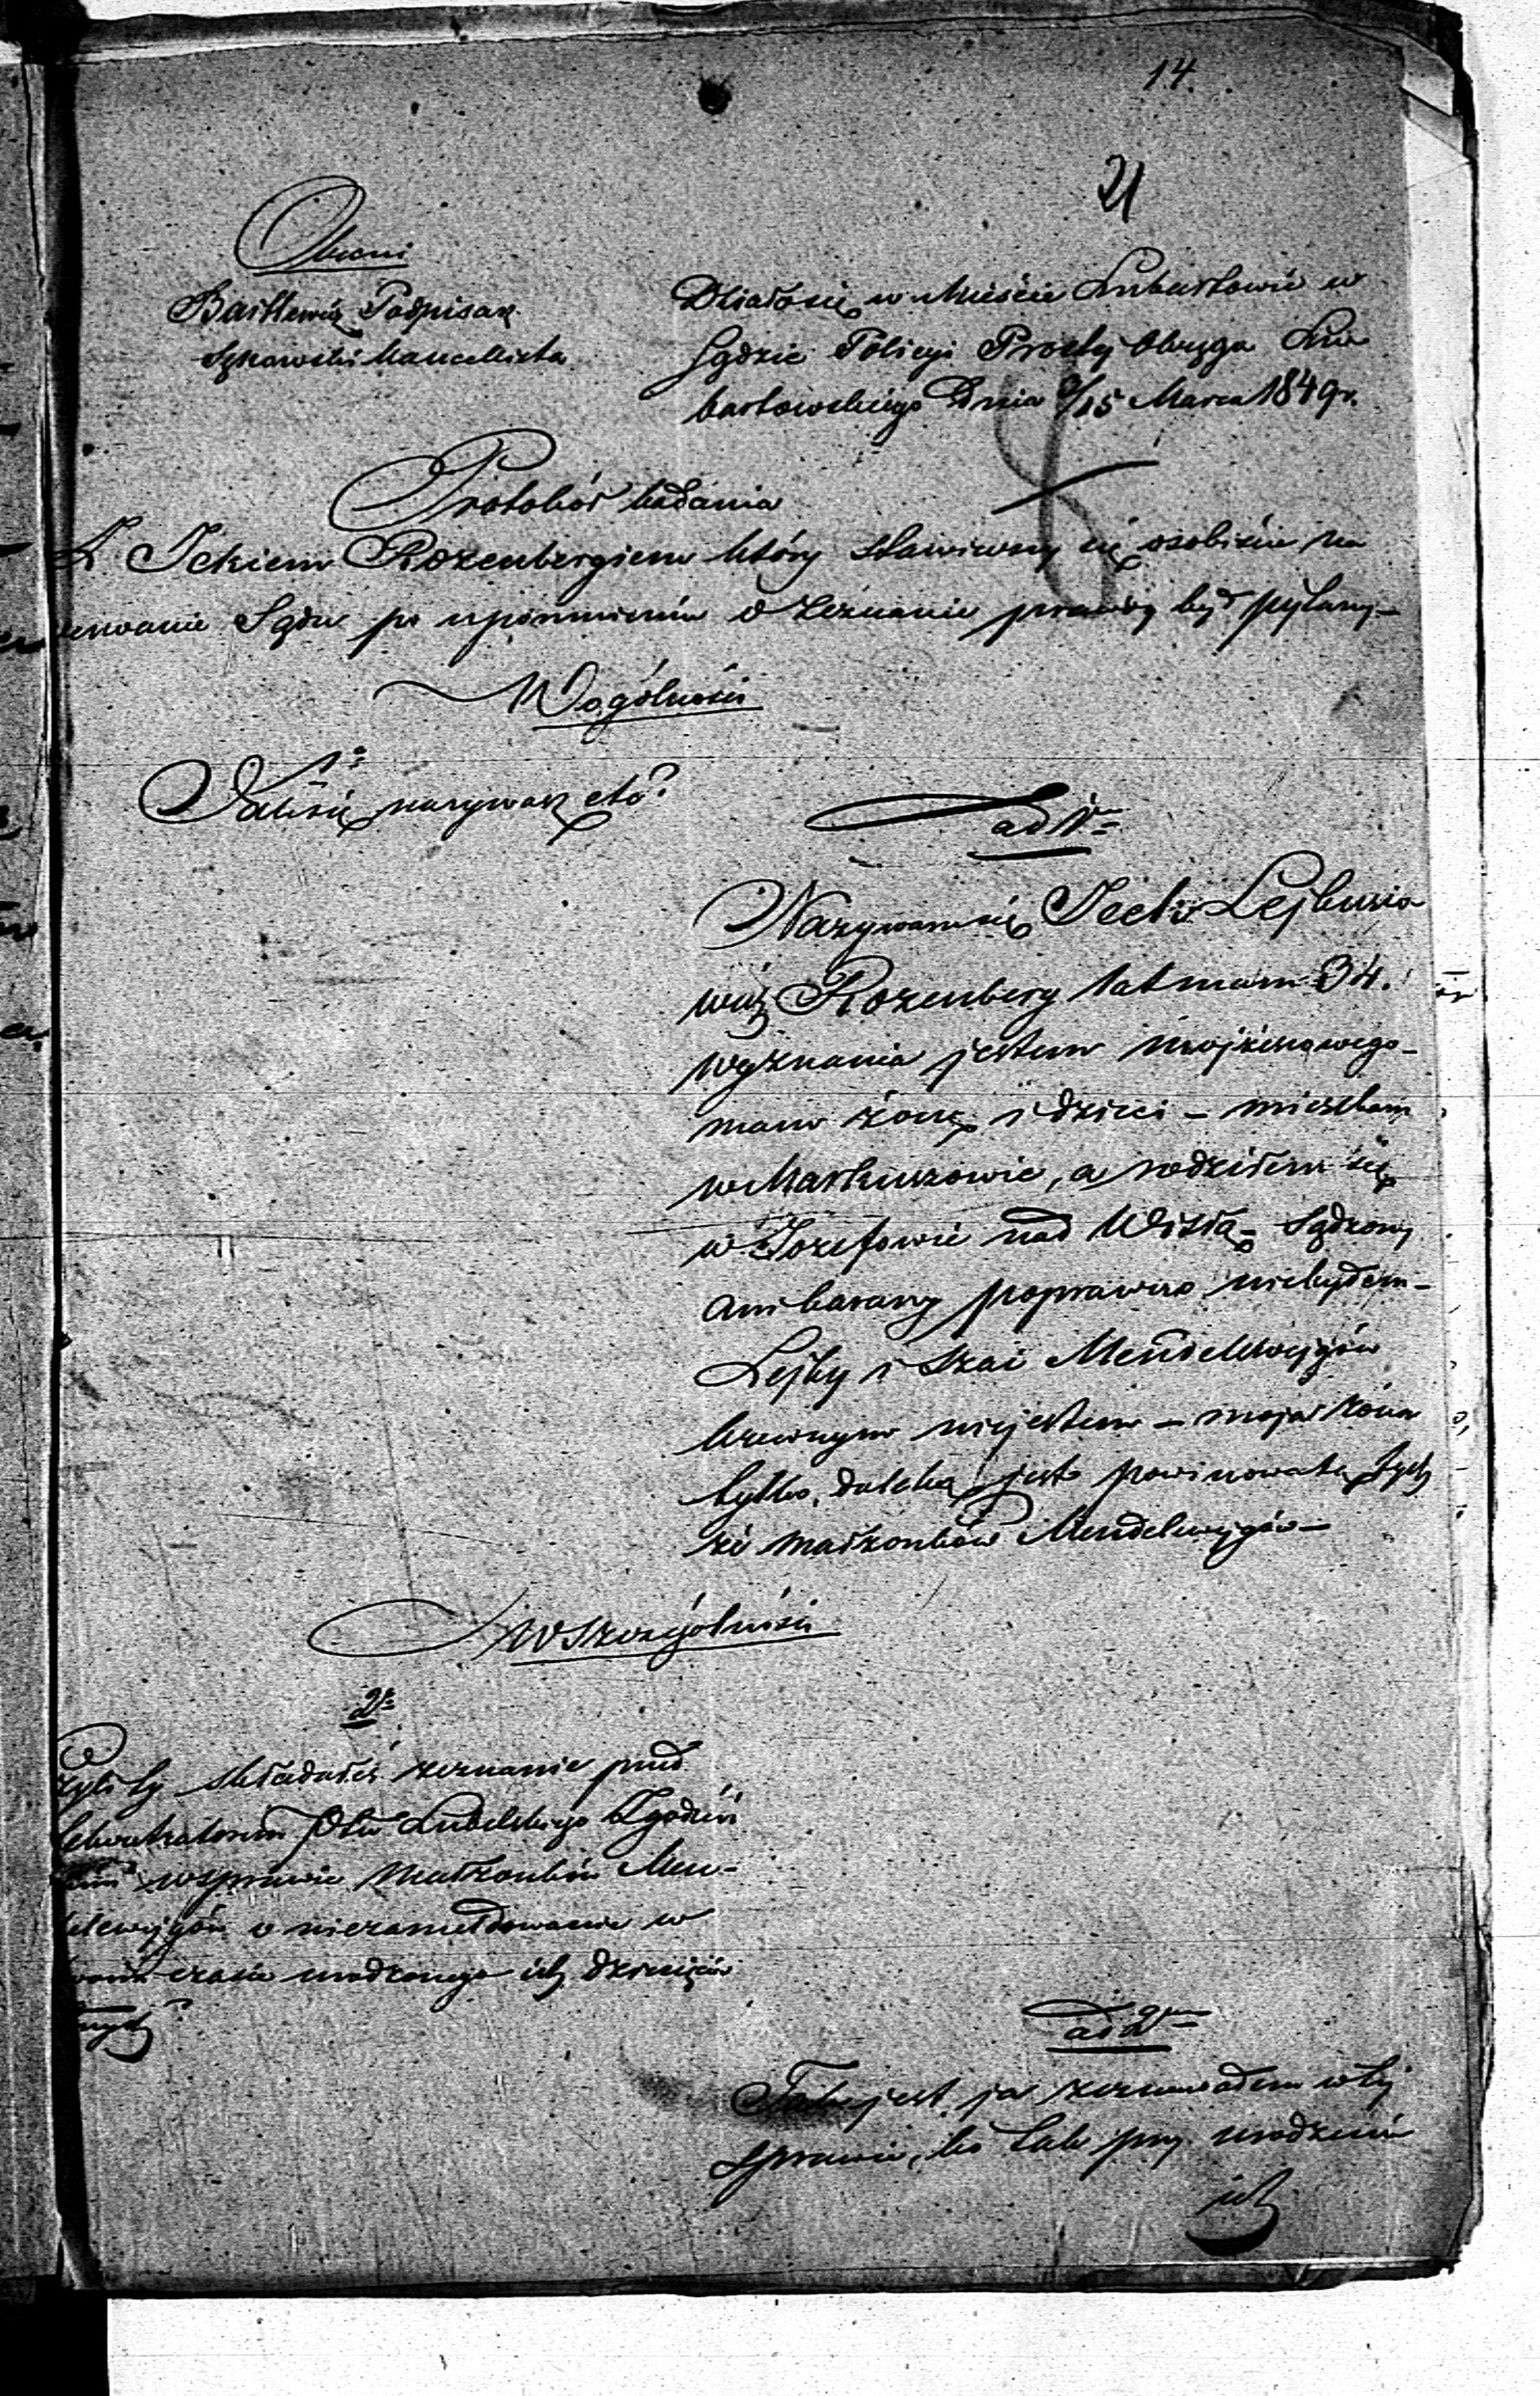 14.
21
Obecni
Bartkiewicz Podpisarz
Kancellista
Działo się w Mieście Lubartowie w
Sądzie Policyi Prostej Okręgu Lu-
bartowskiego Dnia 3/15 Marca 1849 r.
Protokół badania
Z Ickiem Rozenbergiem który stawiwszy się osobiście na
wezwanie Sądu po upomnieniu o zeznanie prawdy był pytany –
W ogólności
1o
Jak się nazywasz etc?
ad 1m
Nazywam się Icek Lejbusio
wicz Rozenberg lat mam 34.
wyznania jestem mojżeszowego –
mam żonę i dzieci – mieszkam
w Markuszowie, a rodziłem się
w Jozefowie nad Wisłą – Sądzony
ani karany poprawczo niebyłem –
Lejby i Szai Mendelwejgów
krewnym niejestem – moja żona
tylko, daleką jest powinowatą tych
że małżonków Mendelwejgów –
W szczególności
2o
Czyli ty składałeś zeznanie przed
Ptu Lubelskiego
w sprawie małżonków Men-
delwejgów o niezameldowanie w
czasie urodzonego ich dziecięcia
ad 2m
Tak jest, ja zeznawałem w tej
sprawie, bo tak przy urodzeniu
ich